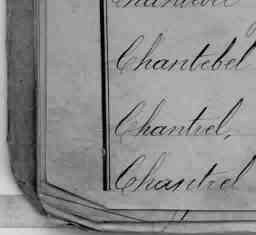 Chantebel
Chantrel,
Chantrel